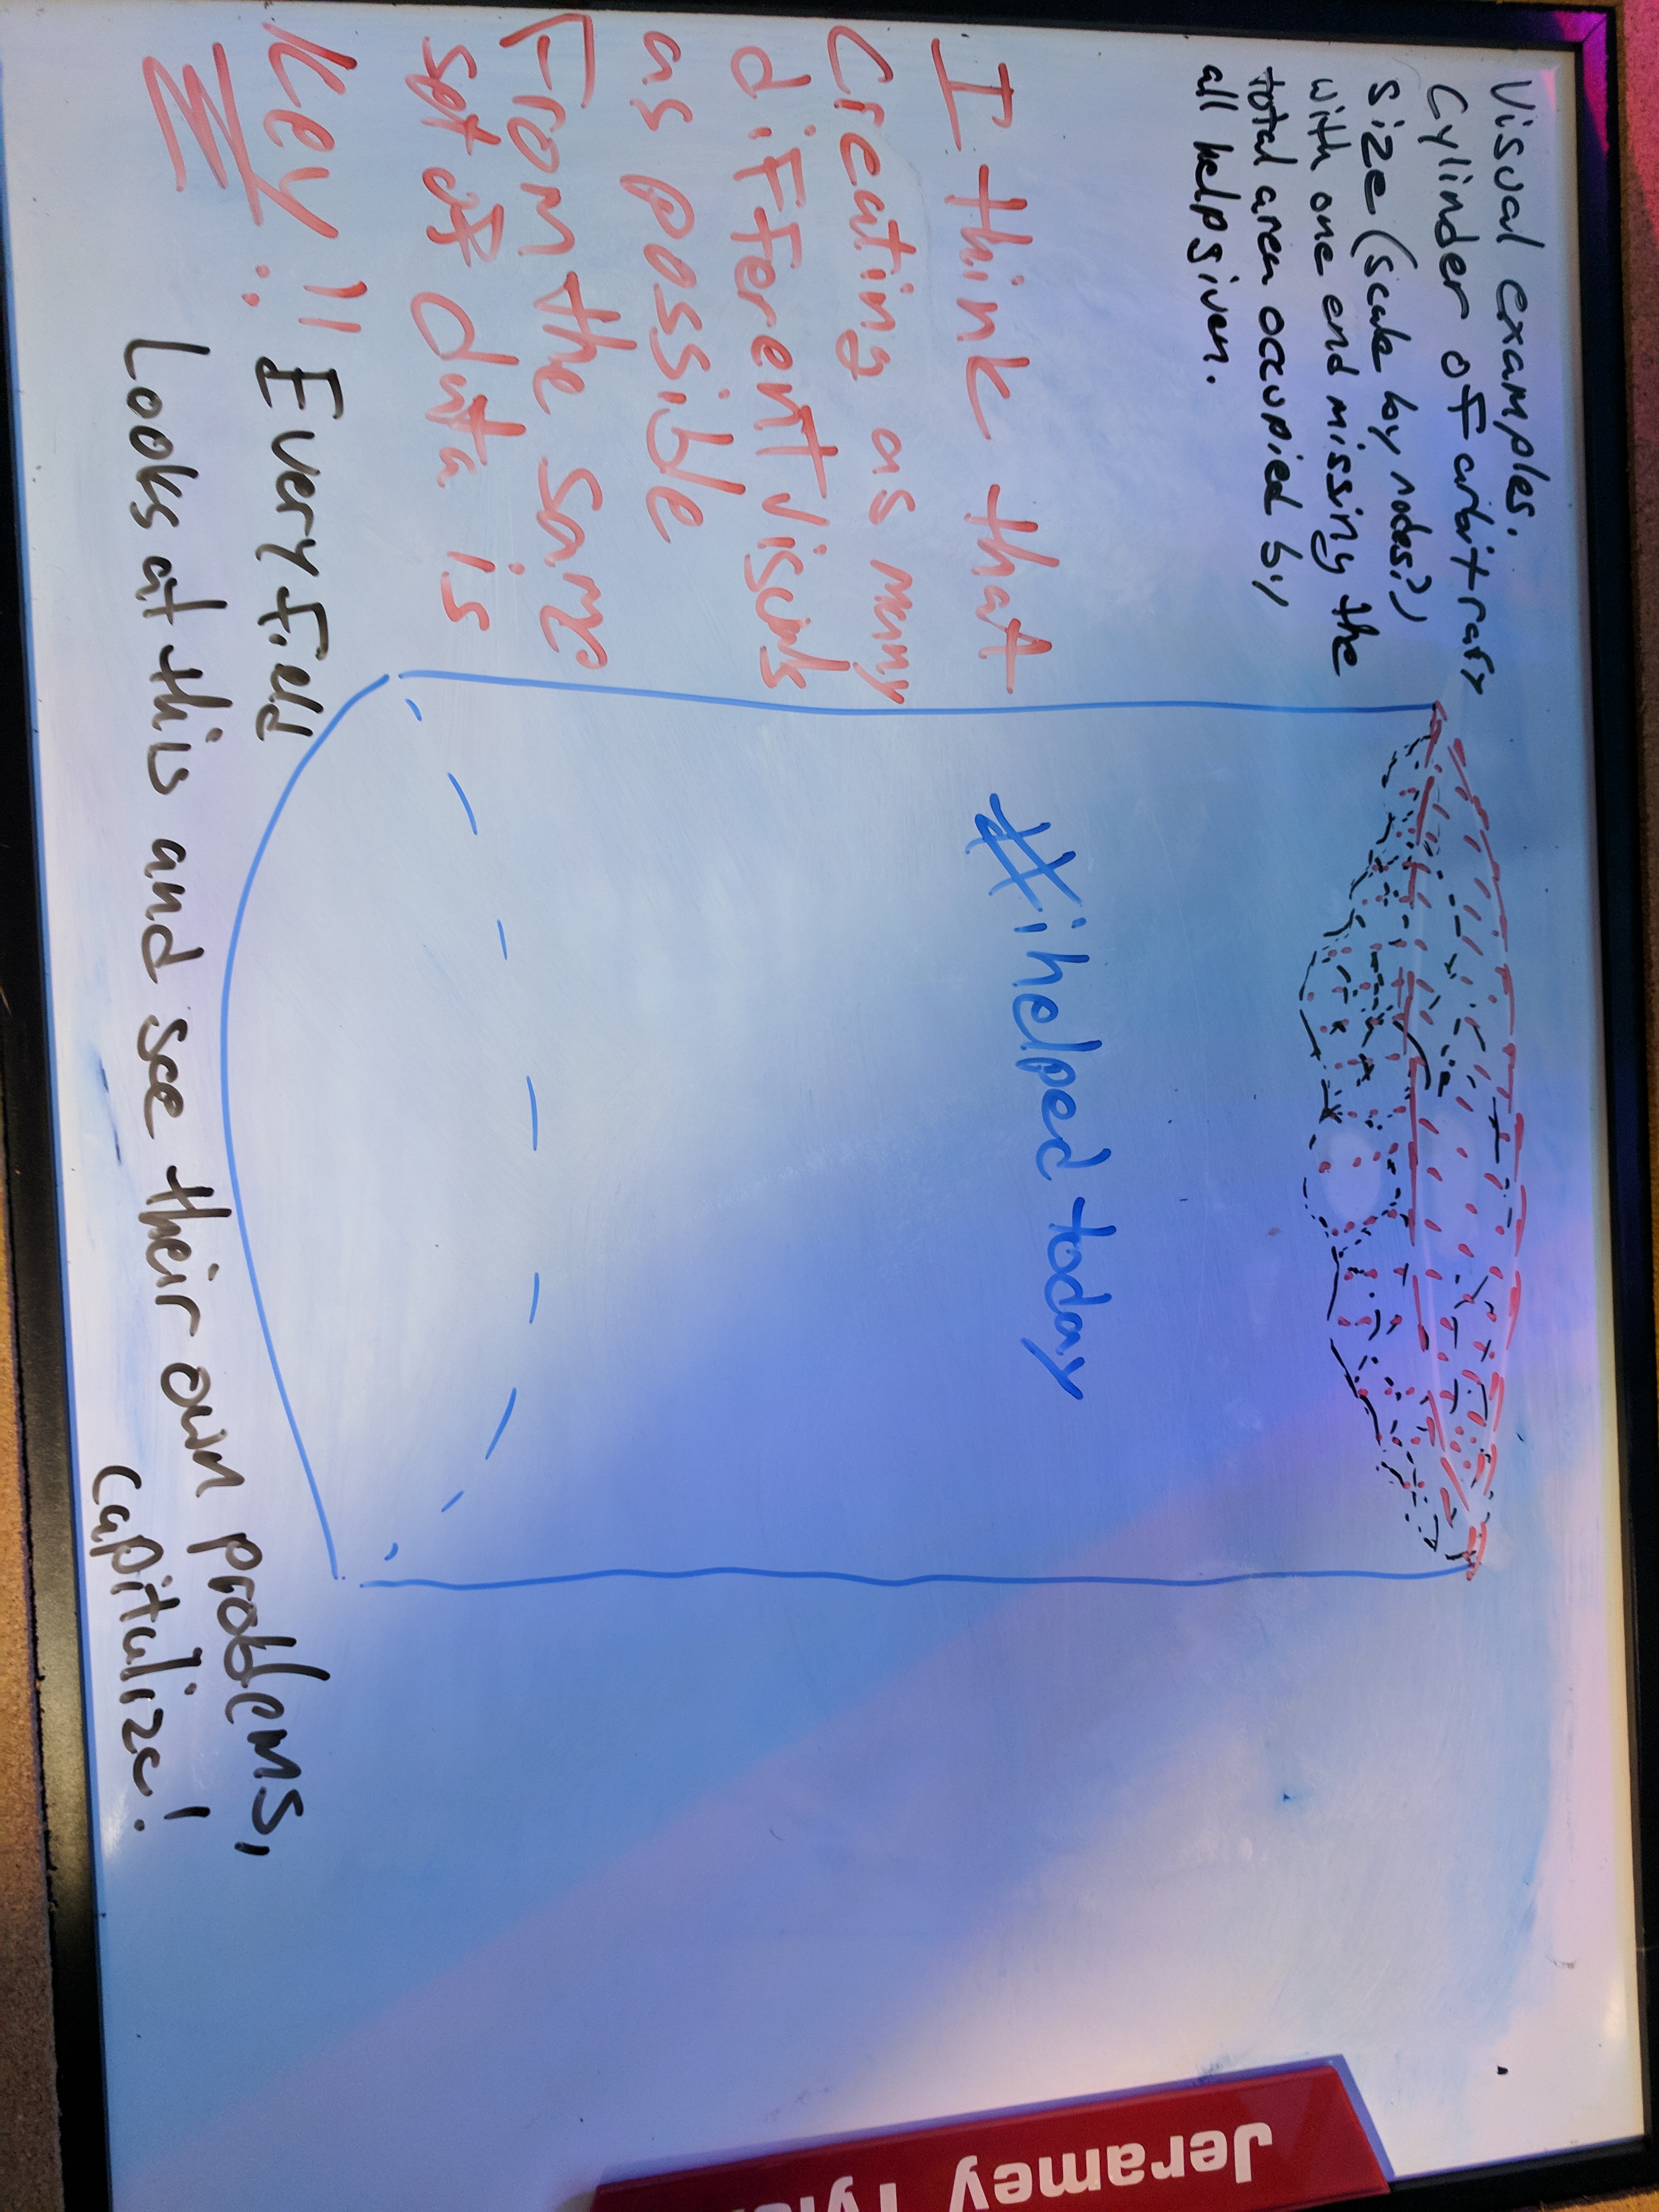 Visual examples.
Cylinder of arbitrary
size (scale by nodes?),
with one end missing the
total area occupied by
all help given.
I think that
Creating as many
different visuals
as possible
From the same
set of data is
Key!!
#ihelped today
Every field
Looks at this and see their own problems,
capitulize!
Jeramey